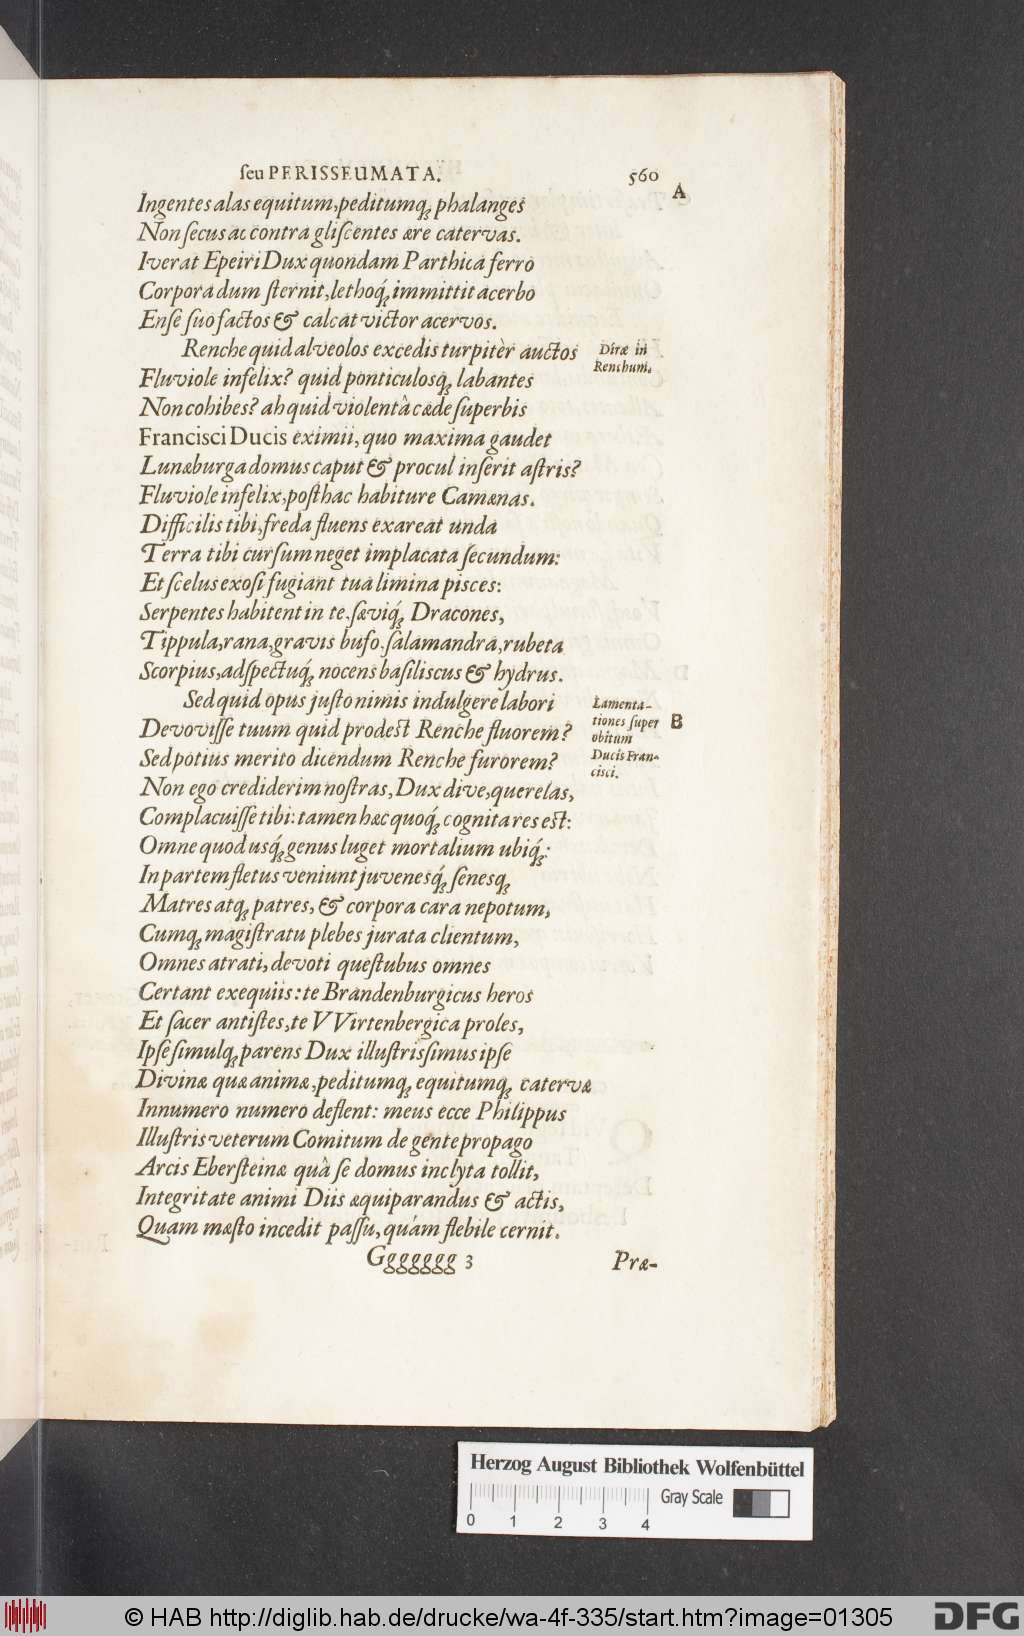 ſeu PERISSEUMATA. 560
A
Ingentes alas equitum, peditumq́ꝫ phalanges
Non ſecus ac contra gliſcentes ære catervas.
Iverat Epeiri Dux quondam Parthica ferro
Corpora dum ſternit, lethoq́ꝫ immittit acerbo
Enſe ſuo factos & calcat victor acervos.
Renche quid alveolos excedis turpitèr auctos
Diræ in
Renchum.
Fluviole infelix? quid ponticulosqꝫ labantes
Non cohibes? ah quid violentâ cæde ſuperbis
Franciſci Ducis eximii, quo maxima gaudet
Lunæburga domus caput & procul inſerit aſtris?
Fluviole infelix, poſthac habiture Camænas.
Difficilis tibi, freda fluens exareat unda
Terra tibi curſum neget implacata ſecundum:
Et ſcelus exoſi fugiant tua limina piſces:
Serpentes habitent in te, ſæviq́ꝫ Dracones,
Tippula, rana, gravis bufo, ſalamandra, rubeta
Scorpius, adſpectuq́ꝫ nocens baſiliscus & hydrus.
Sed quid opus juſto nimis indulgere labori
Lamenta-
tiones ſuper
obitum
Ducis Fran-
ciſci.
B
Devoviſſe tuum quid prodeſt Renche fluorem?
Sed potius merito dicendum Renche furorem?
Non ego crediderim noſtras, Dux dive, querelas,
Complacuiſſe tibi: tamen hæc quoq́ꝫ cognita res eſt:
Omne quod usq́ꝫ genus luget mortalium ubiq́ꝫ:
In partem fletus veniunt juvenesq́ꝫ ſenesqꝫ
Matres atqꝫ patres, & corpora cara nepotum,
Cumqꝫ magiſtratu plebes jurata clientum,
Omnes atrati, devoti queſtubus omnes
Certant exequiis: te Brandenburgicus heros
Et ſacer antiſtes, te VVirtenbergica proles,
Ipſe ſimulqꝫ parens Dux illuſtrisſimus ipſe
Divinæ quæ animæ, peditumqꝫ equitumqꝫ catervæ
Innumero numero deflent: meus ecce Philippus
Illuſtris veterum Comitum de gente propago
Arcis Eberſteinæ quà ſe domus inclyta tollit,
Integritate animi Diis æquiparandus & actis,
Quam mæſto incedit paſſu, quám flebile cernit.
Ggggggg 3 Præ-
Herzog August Bibliothek Wolfenbüttel
Gray Scale
0 1 2 3 4
© HAB http://diglib.hab.de/drucke/wa-4f-335/start.htm?image=01305
DFG